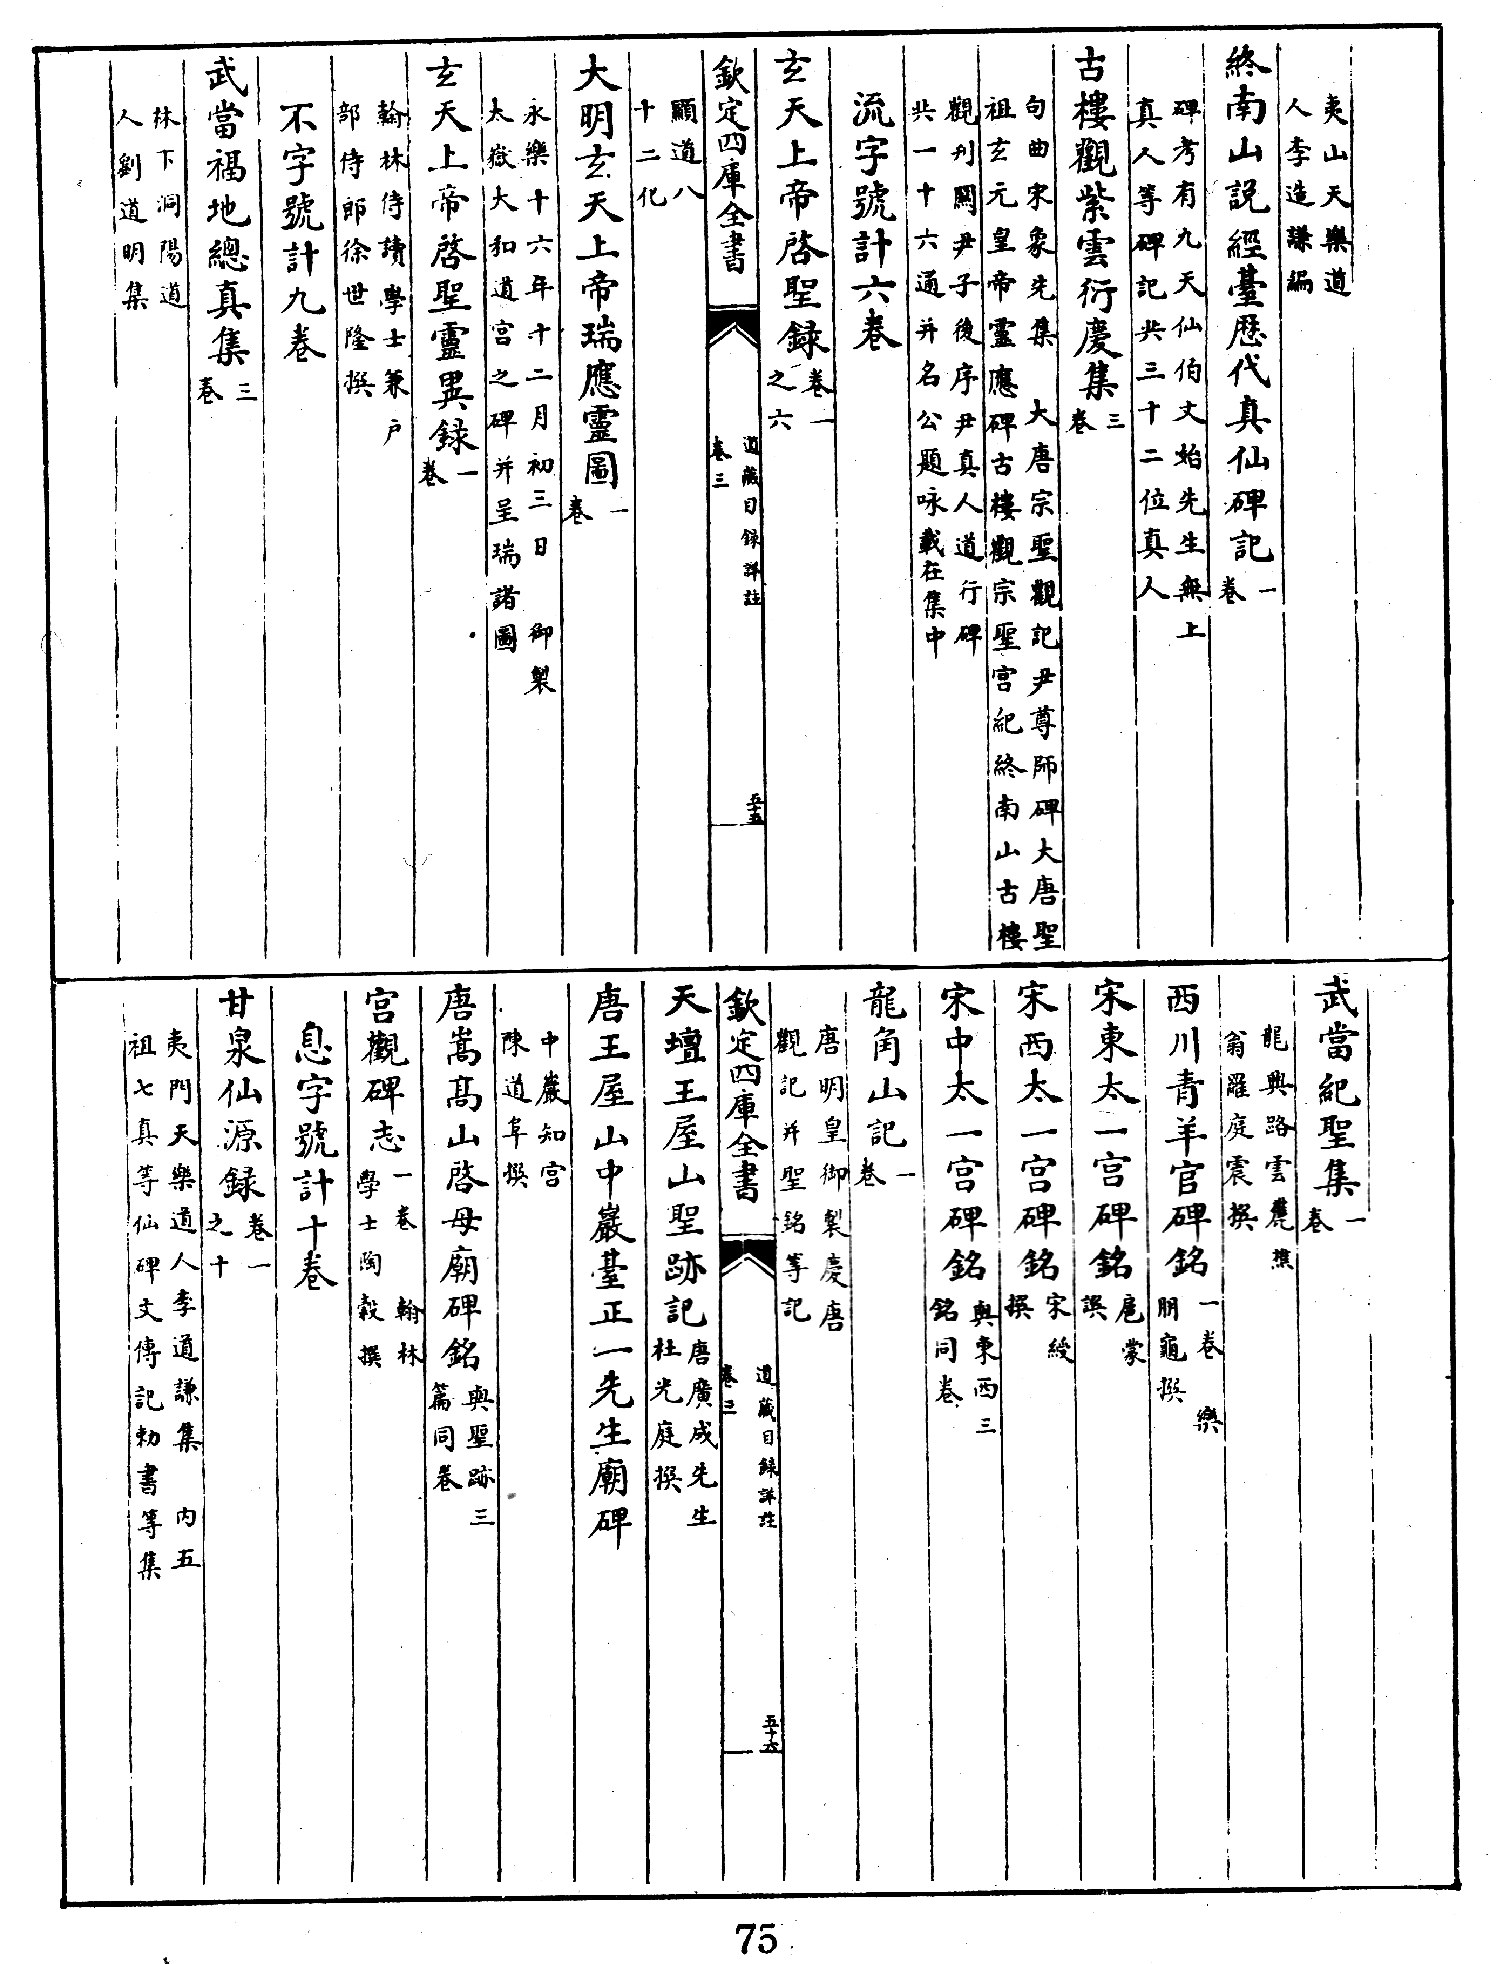 夷山天樂道
人李造謙編
終南山説經臺歴代真仙碑記一卷
碑考有九天仙伯文始先生無上
真人等碑記共三十二位真人
古樓觀紫雲衍慶集三卷
句曲宋象先集 大唐宗聖觀記尹尊師碑大唐聖
祖玄元皇帝靈應碑古樓觀宗聖宮紀終南山古樓
觀刋關尹子後序尹真人道行碑
共一十六通并名公題咏載在集中
流字號計六卷
玄天上帝啓聖録卷一之六
欽定四庫全書
道藏目録詳註
卷三
五十五
顯道八
十二化
大明玄天上帝瑞應靈圖一卷
永樂十六年十二月初三日 御製
太嶽大和道宮之碑并呈瑞諸圖
玄天上帝啓聖靈異録一卷
翰林侍讀學士兼户
部侍郎徐世隆撰
不字號計九卷
武當福地總真集三卷
林下洞陽道
人劉道明集
武當紀聖集一卷
龍興路雲麓樵
翁羅庭震撰
西川青羊宮碑銘一卷 樂朋龜撰
宋東太一宮碑銘扈蒙譔
宋西太一宮碑銘宋綬撰
宋中太一宮碑銘與東西三銘同卷
龍角山記一卷
唐明皇御製慶唐
觀記并聖銘等記
欽定四庫全書
道藏目録詳註
卷三
五十六
天壇王屋山聖跡記唐廣成先生杜光庭撰
唐王屋山中巖臺正一先生廟碑
中巖知宮
陳道阜撰
唐嵩髙山啓母廟碑銘與聖跡三篇同卷
宮觀碑志一卷 翰林學士陶穀撰
息字號計十卷
甘泉仙源録卷一之十
夷門天樂道人李道謙集 内五
祖七真等仙碑文傳記勅書等集
75